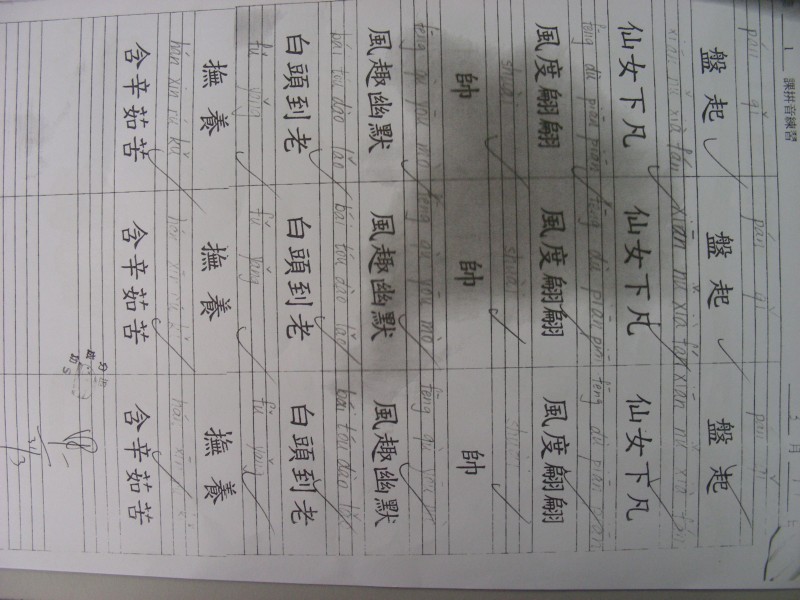 1 課拼音練習 月
pán qǐ pán qǐ pán qǐ
盤起 盤起 盤起
xiān nǚ xià fán xiān nǚ xià fán xiān nǚ xià fán
仙女下凡 仙女下凡 仙女下凡
fēng dù piān piān fēng dù piān piān fēng dù piān piān
風度翩翩 風度翩翩 風度翩翩
shuài shuài shuài
帥 帥 帥
fēng qù yōu mò fēng qù yōu mò fēng qù yōu
風趣幽默 風趣幽默 風趣幽默
bái tóu dào lǎo bái tóu dào lǎo bái tóu dào lǎo
白頭到老 白頭到老 白頭到老
fǔ yǎng fǔ yǎng fǔ yǎng
撫養 撫養 撫養
hán xīn rú kǔ hán xīn rú kǔ hán xīn
含辛茹苦 含辛茹苦 含辛茹苦